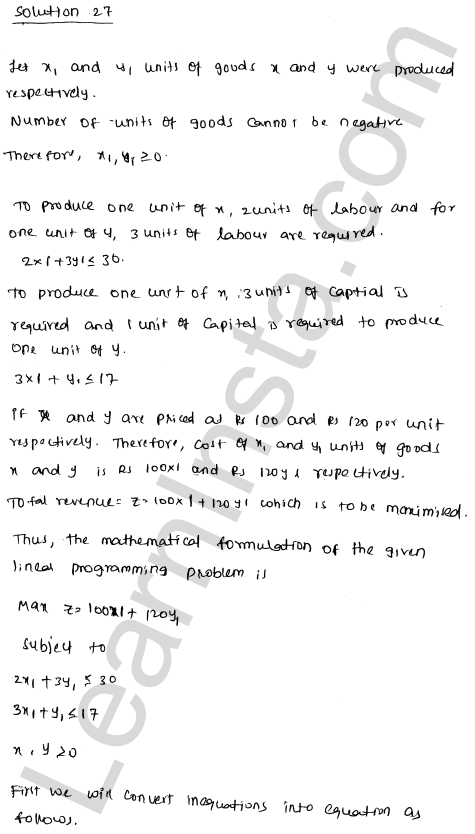 Solution 27
Let x₁ and y₁ units of goods x and y were produced
respectively.
Number of units of goods cannot be negative
Therefore, x₁, y₁ ≥ 0.
To produce one unit of x, 2 units of labour and for
one unit of y, 3 units of labour are required.
2x1 + 3y1 ≤ 30.
To produce one unit of x, 3 units of captial is
required and 1 unit of capital is required to produce
one unit of y.
3x1 + y₁ ≤ 17
If x and y are priced as Rs 100 and Rs 120 per unit
respectively. Therefore, cost of x₁ and y₁ units of goods
x and y is Rs 100x1 and Rs 120y1 respectively.
Total revenue = z = 100x1 + 120y1 which is to be maximised.
Thus, the mathematical formulation of the given
linear programming problem is
Max z = 100x1 + 120y₁
Subject to
2x₁ + 3y₁ ≤ 30
3x₁ + y₁ ≤ 17
x, y ≥ 0
First we will convert inequations into equation as
follows.
LearnInsta.com